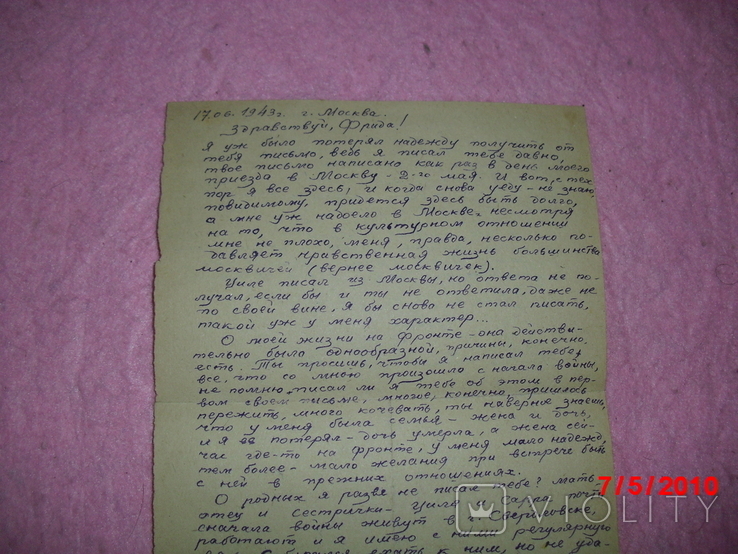 17.06.1943г. г. Москва.
Здравствуй, Фрида!
Я уж было потерял надежду получить от
тебя письмо, ведь я писал тебе давно,
твое письмо написано как раз в день моего
приезда в Москву - 2-го мая. И вот, с тех
пор я все здесь, и когда снова уеду - не знаю,
повидимому, придется здесь быть долго,
а мне уж надоело в Москве, несмотря
на то, что в культурном отношении
мне не плохо, меня, правда, несколько по-
давляет нравственная жизнь большинства
москвичей (вернее москвичек).
Циле писал из Москвы, но ответа не по-
лучал, если бы и ты не ответила, даже не
по своей вине, я бы снова не стал писать,
такой уж у меня характер...
О моей жизни на фронте - она действи-
тельно была однообразной, причины, конечно,
есть. Ты просишь, чтобы я написал тебе
все, что со мною произошло с начала войны,
не помню, писал ли я тебе об этом в пер-
вом своем письме, многое, конечно, пришлось
пережить, много кочевать, ты наверное знаешь,
что у меня была семья - жена и дочь,
и я их потерял - дочь умерла, а жена сей-
час где-то на фронте, у меня мало надежд,
тем более - мало желания при встрече быть
с ней в прежних отношениях.
О родных я разве не писал тебе? Мать,
отец и сестрички - Циля и Сарра почти
сначала войны живут в г. Свердловске,
работают и я имею с ними регулярную
к ним, но не уда-
7/5/2010
VIOLITY